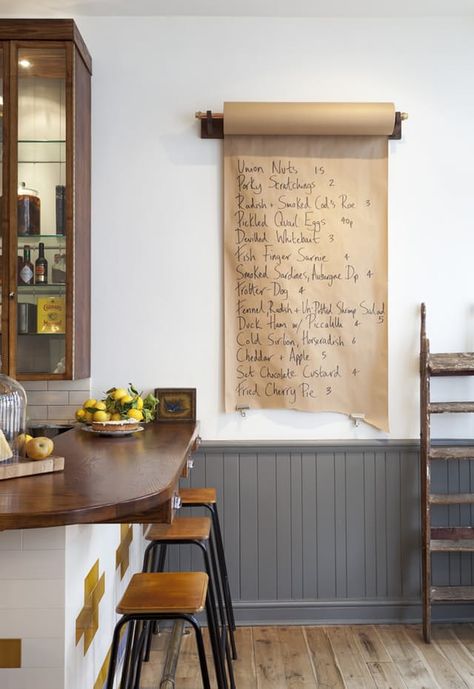 Union Nuts 1.5
Porky Scratchings 2
Radish + Smoked Cod's Roe 3
Pickled Quail Eggs 40p
Devilled Whitebait 3
Fish Finger Sarnie 4
Smoked Sardines, Aubergine Dp 4
Trotter-Dog 4
Fennel, Radish + Un-Potted Shrimp Salad
Duck Ham w/ Piccalilli 4 5
Cold Sirloin, Horseradish 6
Cheddar + Apple 5
Set Chocolate Custard 4
Fried Cherry Pie 3